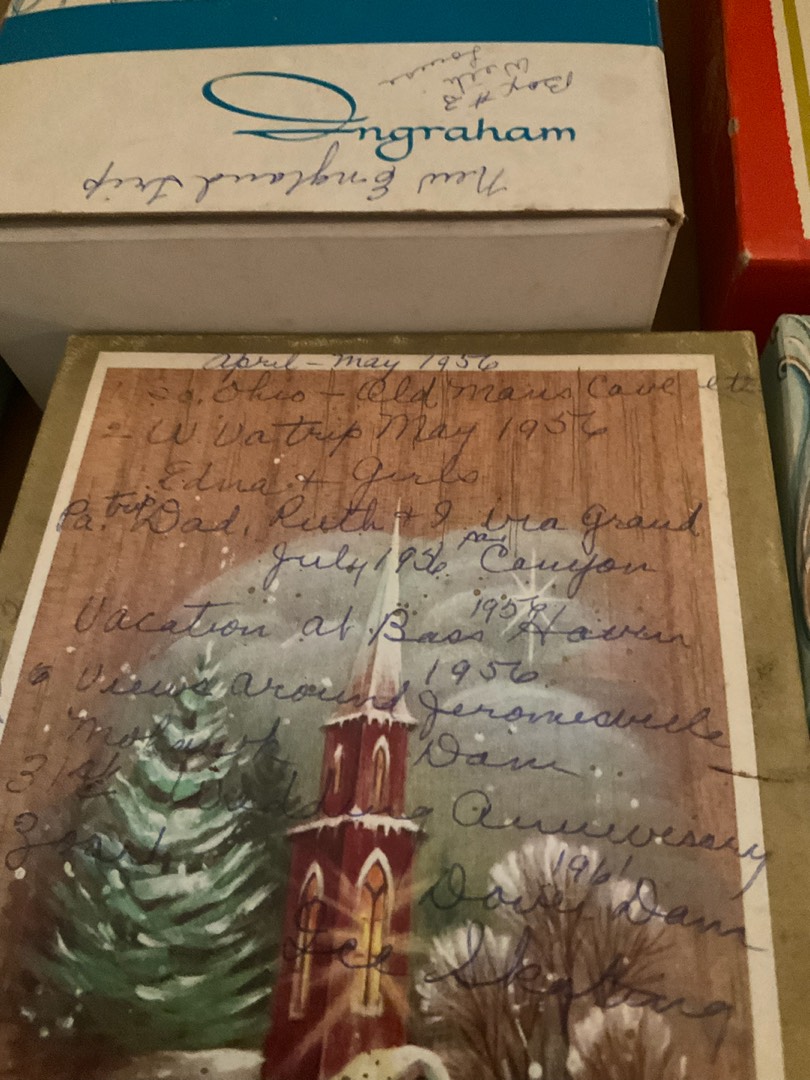 Box #3
With
Louise
Ingraham
New England trip
April - May 1956
So. Ohio - Old Mans Cave etc
- W. Va trip May 1956
Edna + Girls
Pa. trip Dad, Ruth + I via Grand
July 1956 Pa. Canyon
Vacation at Bass Haven 1959
Views around Jeromesville 1956
Mohawk Dam
31st Wedding Anniversary
Zoar, 1961
Dover Dam
Ice Skating